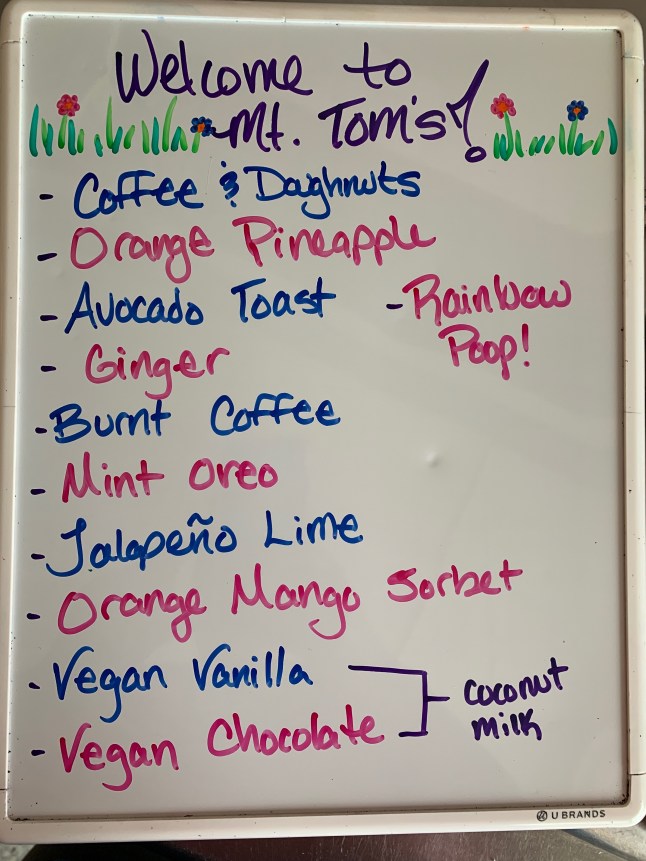 Welcome to
Mt. Tom's!
- Coffee & Doughnuts
- Orange Pineapple
- Avocado Toast
- Rainbow
Poop!
- Ginger
- Burnt Coffee
- Mint Oreo
- Jalapeño Lime
- Orange Mango Sorbet
- Vegan Vanilla
- Vegan Chocolate
coconut
milk
U BRANDS